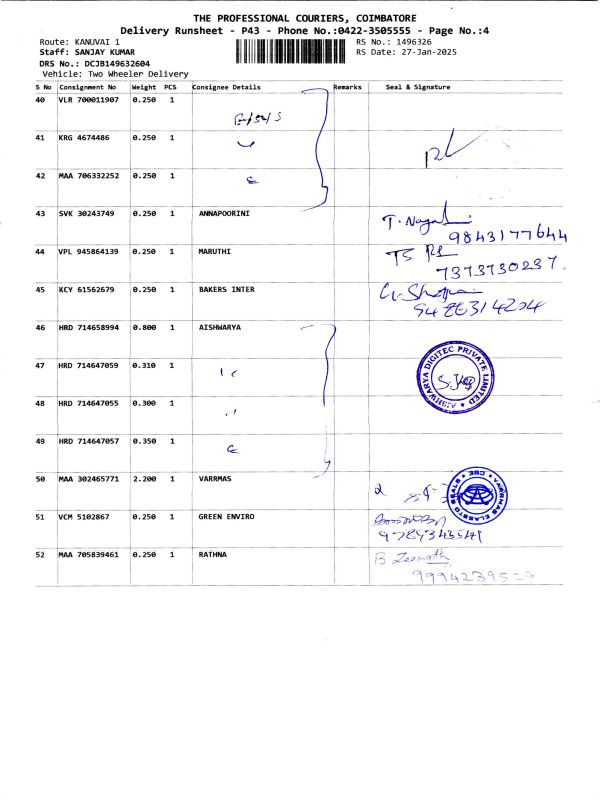 THE PROFESSIONAL COURIERS, COIMBATORE
Delivery Runsheet - P43 - Phone No.:0422-3505555 - Page No.:4
Route: KANUVAI 1 RS No.: 1496326
Staff: SANJAY KUMAR RS Date: 27-Jan-2025
DRS No.: DCJB149632604
Vehicle: Two Wheeler Delivery
S No Consignment No Weight PCS Consignee Details Remarks Seal & Signature
40 VLR 700011907 0.250 1
41 KRG 4674486 0.250 1
42 MAA 706332252 0.250 1
43 SVK 30243749 0.250 1 ANNAPOORINI
9843177644
44 VPL 945864139 0.250 1 MARUTHI
7373730237
45 KCY 61562679 0.250 1 BAKERS INTER
46 HRD 714658994 0.800 1 AISHWARYA
AISHWARYA DIGITEC PRIVATE LIMITED
47 HRD 714647059 0.310 1
48 HRD 714647055 0.300 1
49 HRD 714647057 0.350 1
50 MAA 302465771 2.200 1 VARRMAS
51 VCM 5102867 0.250 1 GREEN ENVIRO
52 MAA 705839461 0.250 1 RATHNA
B Zeenath